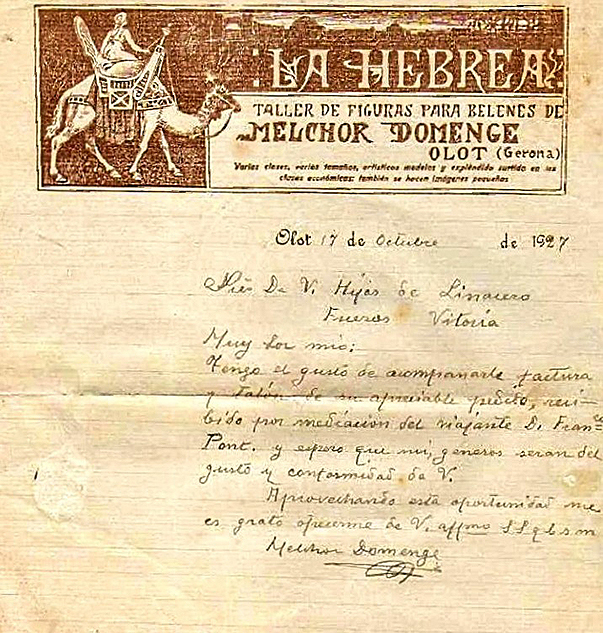 LA HEBREA
TALLER DE FIGURAS PARA BELENES DE
MELCHOR DOMENGE
OLOT (Gerona)
Varias clases, varios tamaños, artísticos modelos y espléndido surtido en las
clases económicas: también se hacen imágenes pequeñas
Olot 17 de Octubre de 1927
De V. Hijos de Linacero
Fueros Vitoria
Muy Sor mio:
Tengo el gusto de acompañarle factura
y talón de su apreciable pedido, reci-
bido por mediacion del viajante D. Franco
Pont. y espero que mis generos seran del
gusto y conformidad de V.
Aprovechando esta oportunidad me
es grato ofrecerme de V. affmo S S q b s m
Melchor Domenge